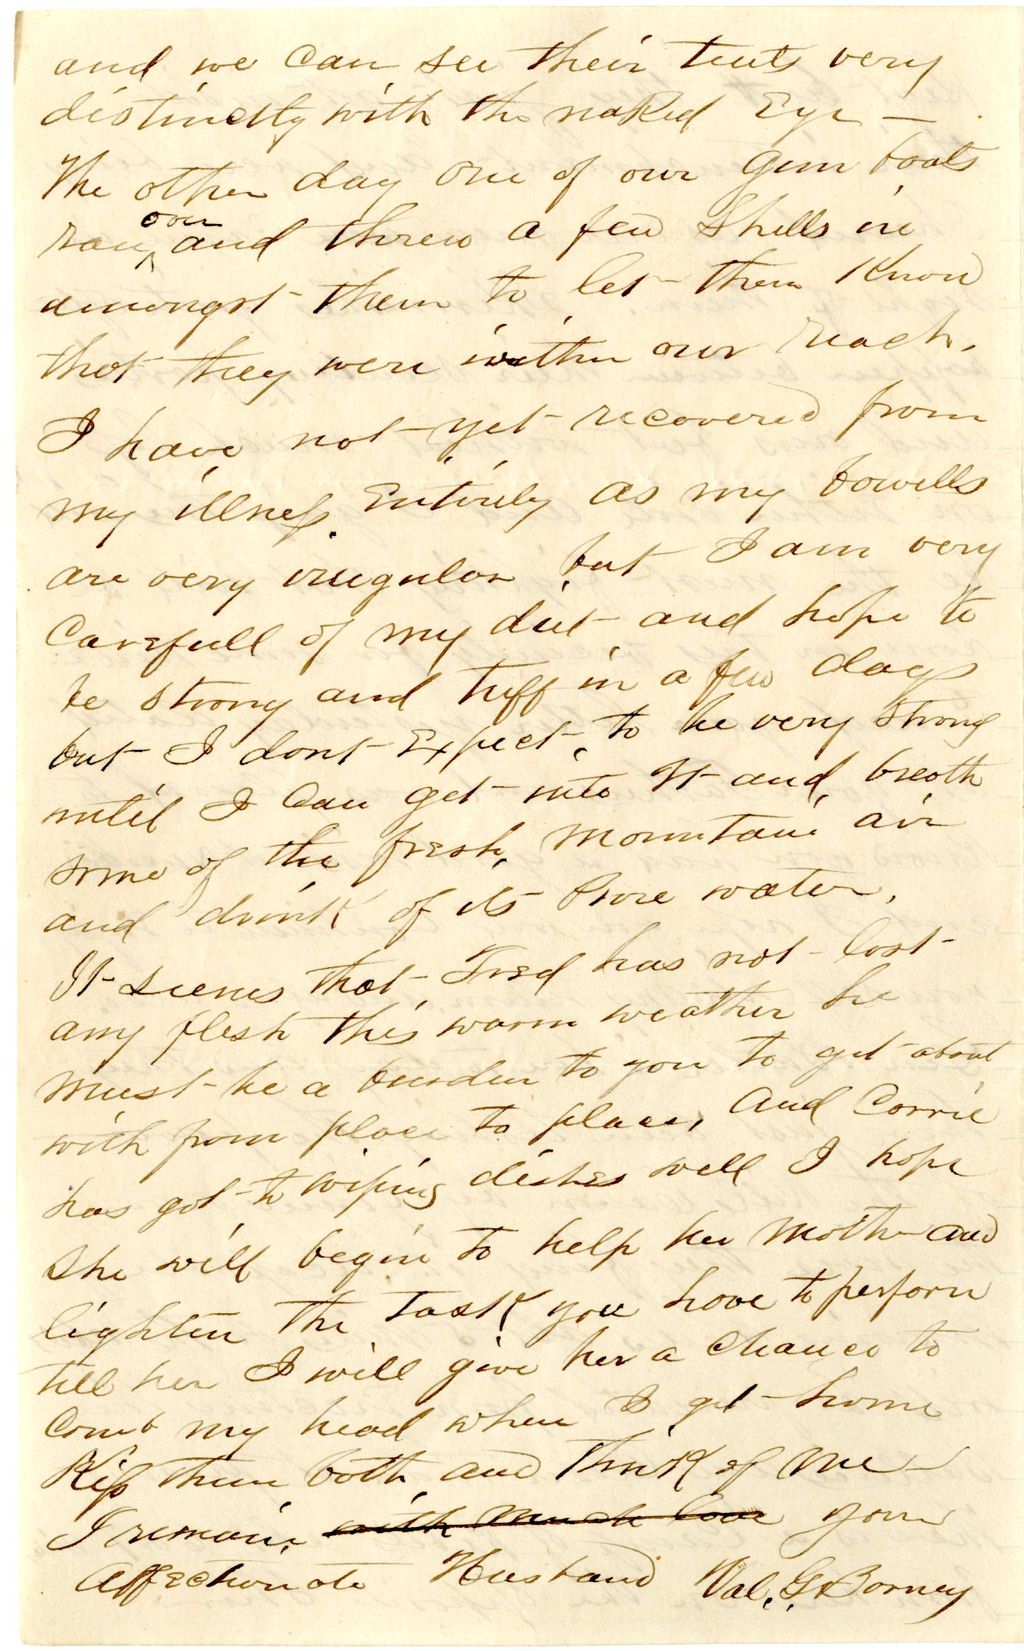 and we can see their tents very
distinctly with the naked Eye —
The other day one of our gun boats
ran over and threw a few shells in
amongst them to let them Know
that they were within our reach.
I have not yet recovered from
my illness Entirely as my bowells
are very irregular but I am very
Carefull of my diet and hope to
be strong and tuff in a few days
but I dont Expect to be very strong
until I Can get into Vt and breath
some of the fresh mountain air
and drink of its Pure water.
It seems that Fred has not lost
any flesh this warm weather he
must be a burden to you to get about
with from place to place, And Corrie
has got to wiping dishes well I hope
she will begin to help her Mother and
lighten the task you have to perform
tell her I will give her a chance to
Comb my head when I get home
Kiss them both and think of me
I remain with much love your
Affectionate Husband Val. G. Barney